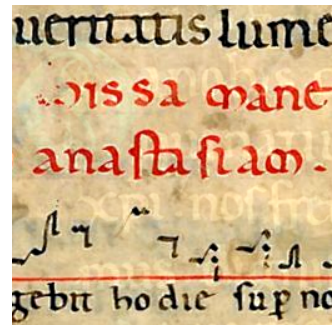 ueritatis lume
Missa mane
anastasiam .
gebit hodie suꝑ no